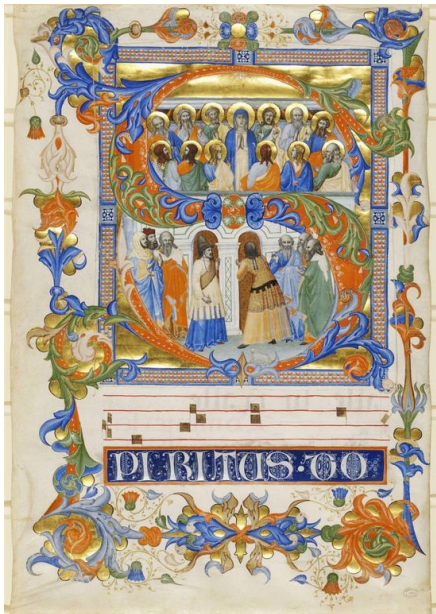 S
PIRITUS·DO